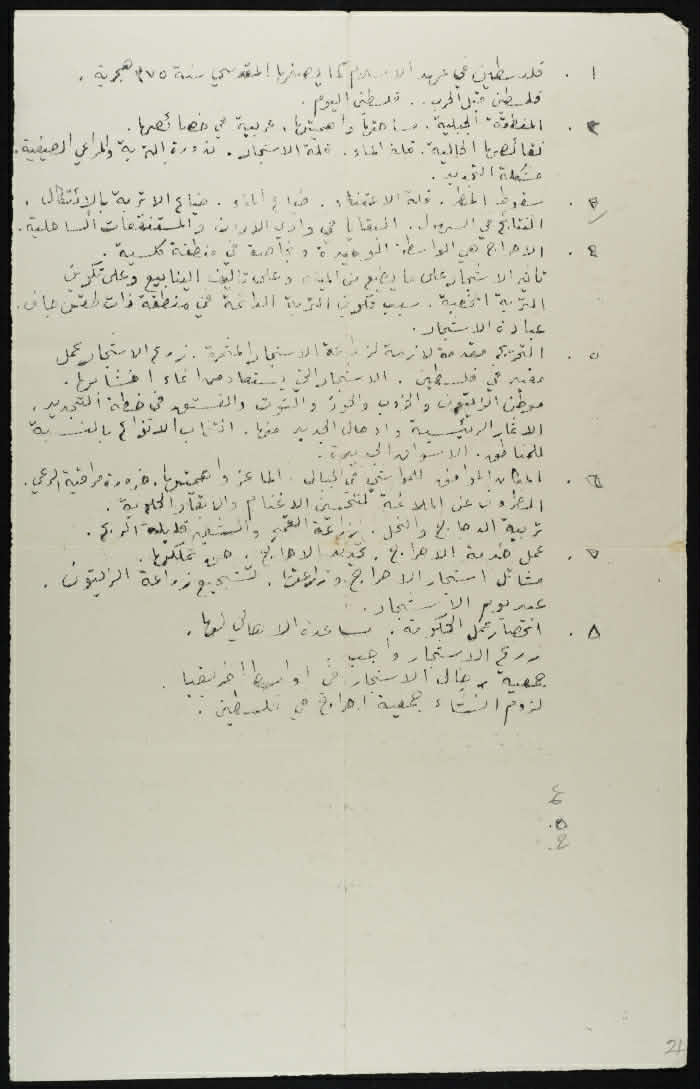 ١ . فلسطين في عهد الاسلام كما يصفها المقدسي سنة ٣٧٥ هجرية .
فلسطين قبل الحرب . . فلسطين اليوم .
٢ . المنطقة الجبلية . مناظرها واهميتها . غريبة في خصائصها .
نقائصها الحالية . قلة الماء . قلة الاشجار . ندورة التربة والمراعي الصيفية .
مشكلة التبريد .
٣ . سقوط المطر . قلة الاعتناء . ضياع الماء . ضياع الاتربة بالانتقال .
النتائج في السهول . البقايا في وادي الاردن والمستنقعات الساحلية .
٤ . الاحراج هي الواسطة الوحيدة وخاصة في منطقة كلسية .
تأثير الاشجار على ما يضيع من المياه وعلى تأليف الينابيع وعلى تكوين
التربة الخصبة . سبب تكوين التربة الدائمة في منطقة ذات طقس جاف .
عبادة الاشجار .
٥ . التحريج مقدمة لازمة لزراعة الاشجار المثمرة . زرع الاشجار عمل
مفيد في فلسطين . الاشجار التي يستفاد من انماء اخشابها .
موطن الزيتون والخروب والجوز والتوت والفستق في خطة التجديد .
الاثمار الرئيسية وادخال الجديد منها . انتخاب الانواع بالنسبة
للمناطق . الاسواق الجديدة .
٦ . المكان الموافق للمواشي في الجبال . الماعز واهميتها . ضرورة مراقبة الرعي .
الظروف الملائمة لتحسين الاغنام والابقار الحلوبة .
تربية الدجاج والنحل . زراعة القمح والشعير قليلة الربح .
٧ . عمل خدمة الاحراج . تحديد الاحراج . حق تملكها .
مشاتل اشجار الاحراج وزراعتها . تشجيع زراعة الزيتون .
عيد يوم الاشجار .
٨ . اختصار عمل الحكومة . مساعدة الاهالي لها .
زرع الاشجار واجب .
جمعية رجال الاشجار في اواسط افريقيا .
لزوم انشاء جمعية احراج في فلسطين .
٤
٥ .
٤ .
21